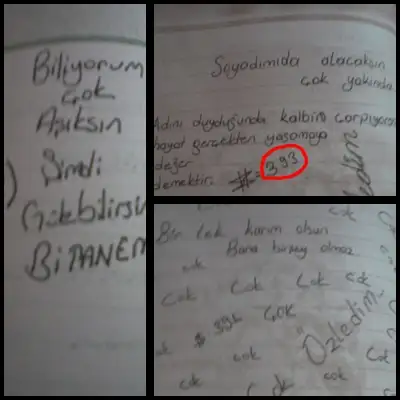 Biliyorum
Çok
Aşıksın
Şimdi
Gidebilirsin
BiTANEM
Soyadımıda alacaksın
çok yakında
Adını duyduğunda kalbin çarpıyorsa
hayat gerçekten yaşamaya
değer
demektir.
#=393
Bir tek karım olsun
Bana birşey olmaz
cok
Cok Cok Cok cok
ok $ 394 ÇOK
Özledim
cok cok Cok
cok cok cok